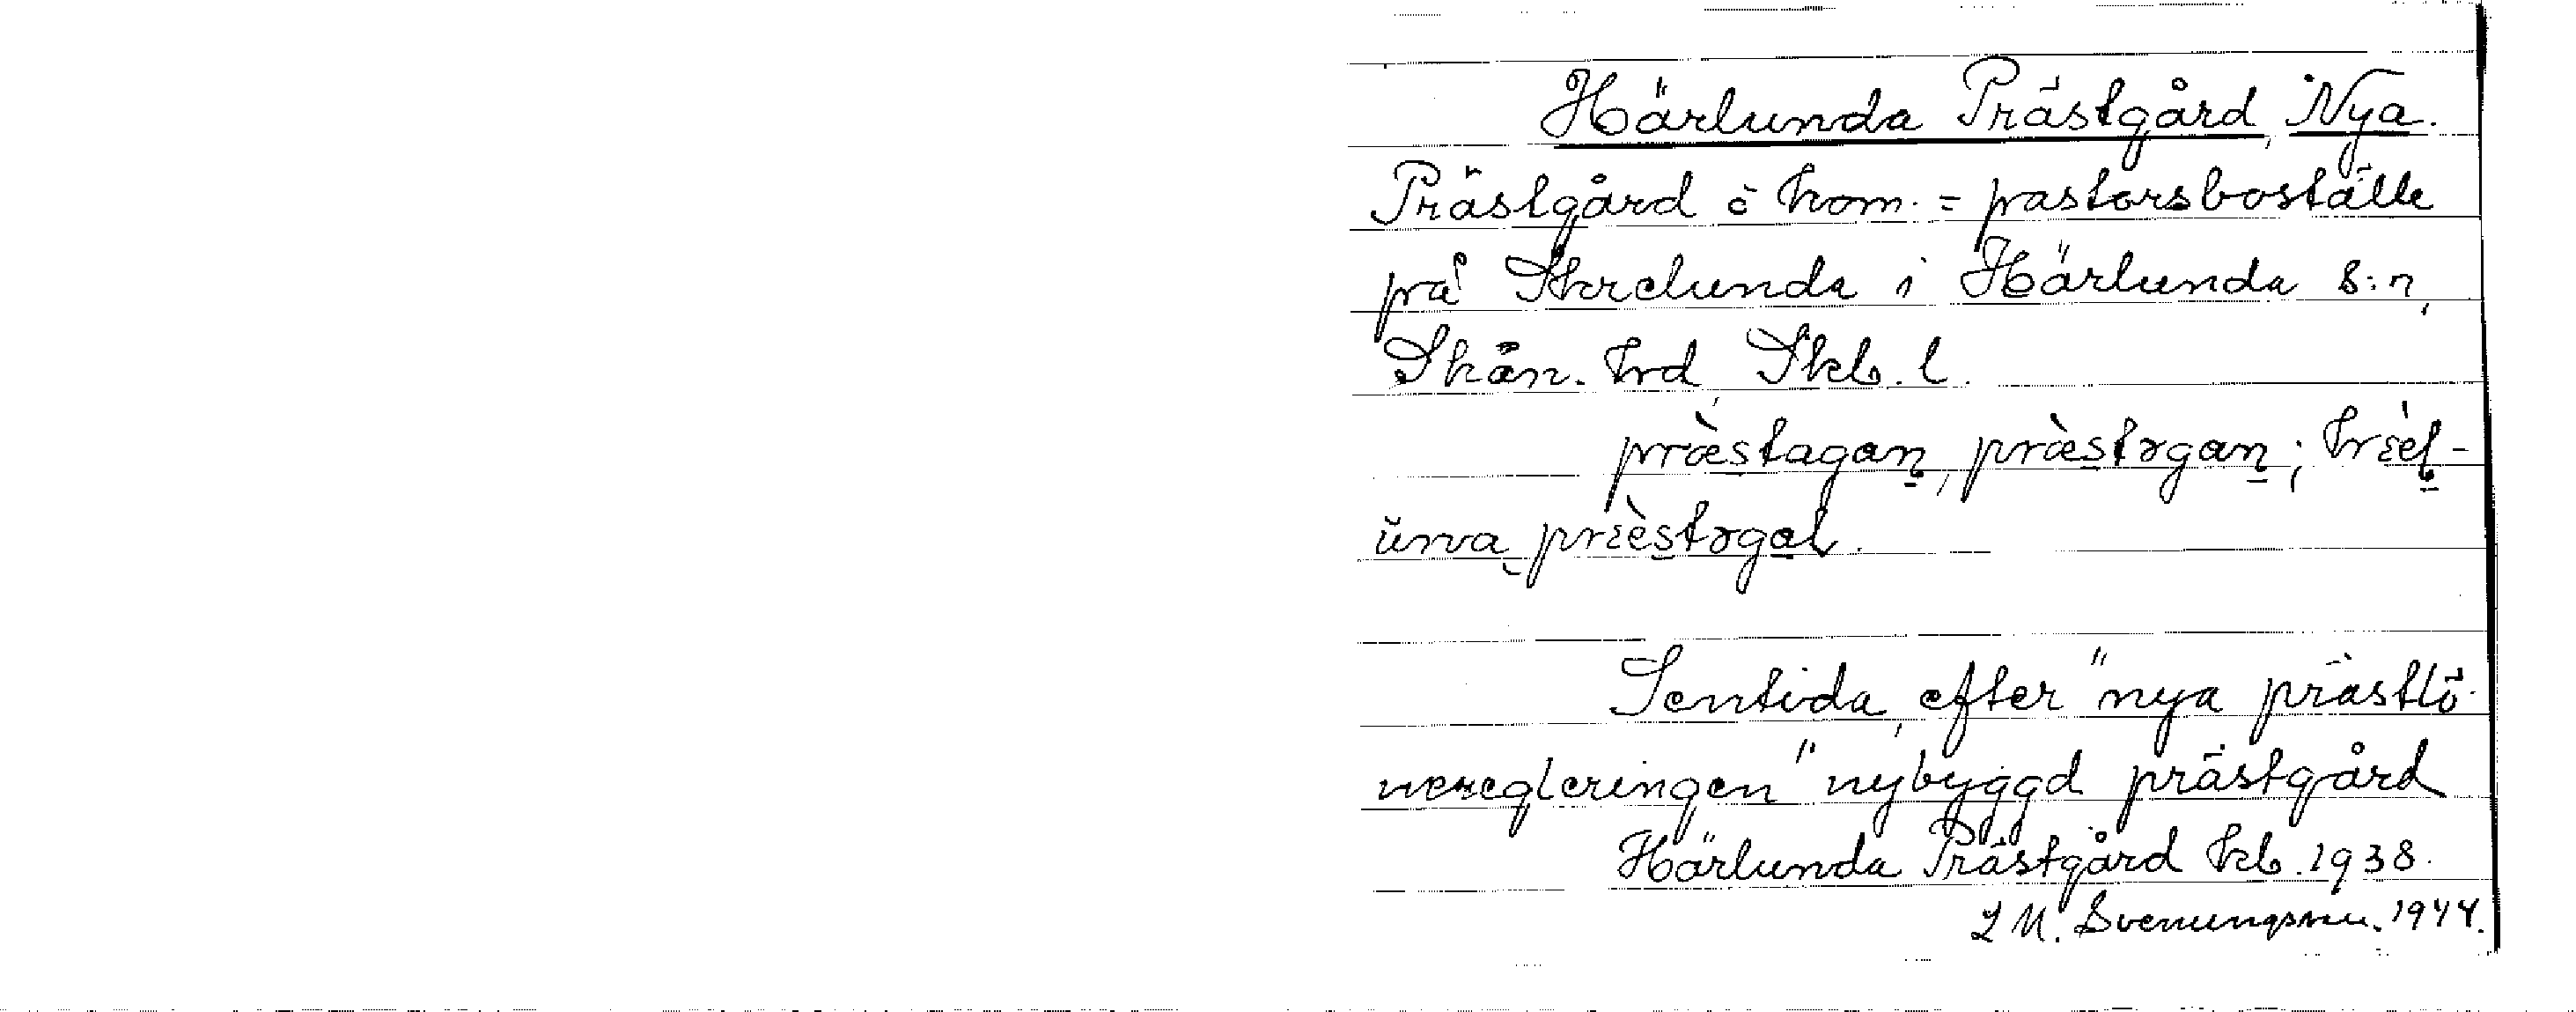 Härlunda Prästgård, Nya.
Prästgård o hom. = pastorsboställe
på Skrelunda i Härlunda s:n,
Skån. hrd, Skb. l.
præstagan, præstəgan;
præstəgaḷ.
Sentida, efter "nya prästlö-
neregleringen" nybyggd prästgård
Härlunda Prästgård kb. 1938.
L M. Svenungsson. 1944.